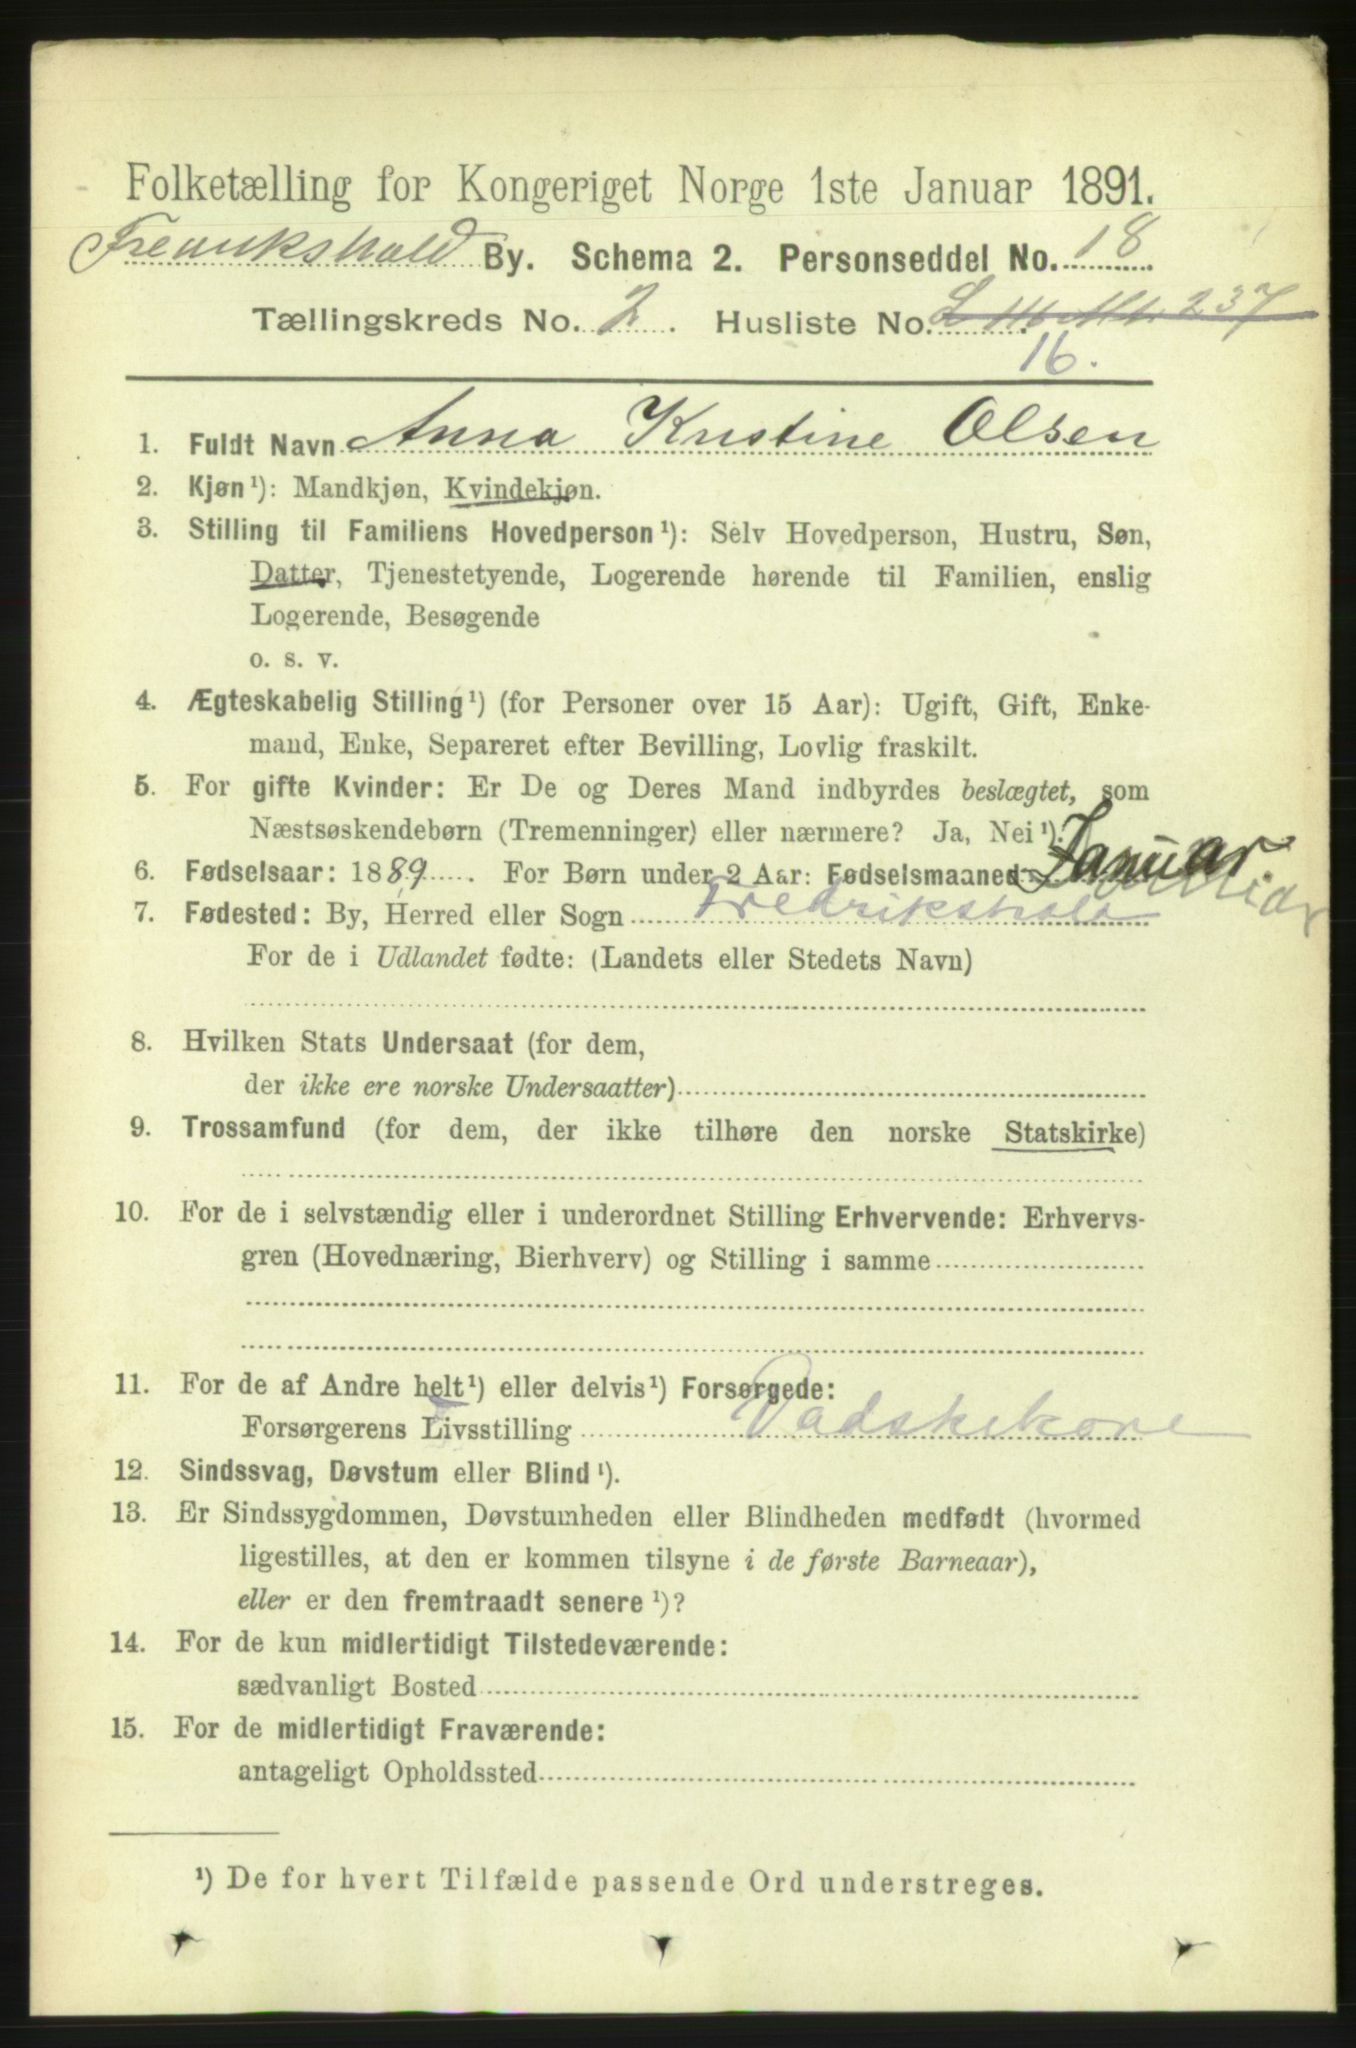 Folketælling for Kongeriget Norge 1ste Januar 1891.
Fredrikshald By. Schema 2. Personseddel No. 18
Tællingskreds No. 2. Husliste No. 237
16.
1. Fuldt Navn Anna Kristine Olsen
2. Kjøn¹): Mandkjøn, Kvindekjøn.
3. Stilling til Familiens Hovedperson¹): Selv Hovedperson, Hustru, Søn,
Datter, Tjenestetyende, Logerende hørende til Familien, enslig
Logerende, Besøgende
o. s. v.
4. Ægteskabelig Stilling¹) (for Personer over 15 Aar): Ugift, Gift, Enke-
mand, Enke, Separeret efter Bevilling, Lovlig fraskilt.
5. For gifte Kvinder: Er De og Deres Mand indbyrdes beslægtet, som
Næstsøskendebørn (Tremenninger) eller nærmere? Ja, Nei¹).
6. Fødselsaar: 1889. For Børn under 2 Aar: Fødselsmaaned: Januar.
7. Fødested: By, Herred eller Sogn Fredrikshald
For de i Udlandet fødte: (Landets eller Stedets Navn)
8. Hvilken Stats Undersaat (for dem,
der ikke ere norske Undersaatter)
9. Trossamfund (for dem, der ikke tilhøre den norske Statskirke)
10. For de i selvstændig eller i underordnet Stilling Erhvervende: Erhvervs-
gren (Hovednæring, Bierhverv) og Stilling i samme
11. For de af Andre helt¹) eller delvis¹) Forsørgede:
Forsørgerens Livsstilling Vadskekone
12. Sindssvag, Døvstum eller Blind¹).
13. Er Sindssygdommen, Døvstumheden eller Blindheden medfødt (hvormed
ligestilles, at den er kommen tilsyne i de første Barneaar),
eller er den fremtraadt senere¹)?
14. For de kun midlertidigt Tilstedeværende:
sædvanligt Bosted
15. For de midlertidigt Fraværende:
antageligt Opholdssted
¹) De for hvert Tilfælde passende Ord understreges.